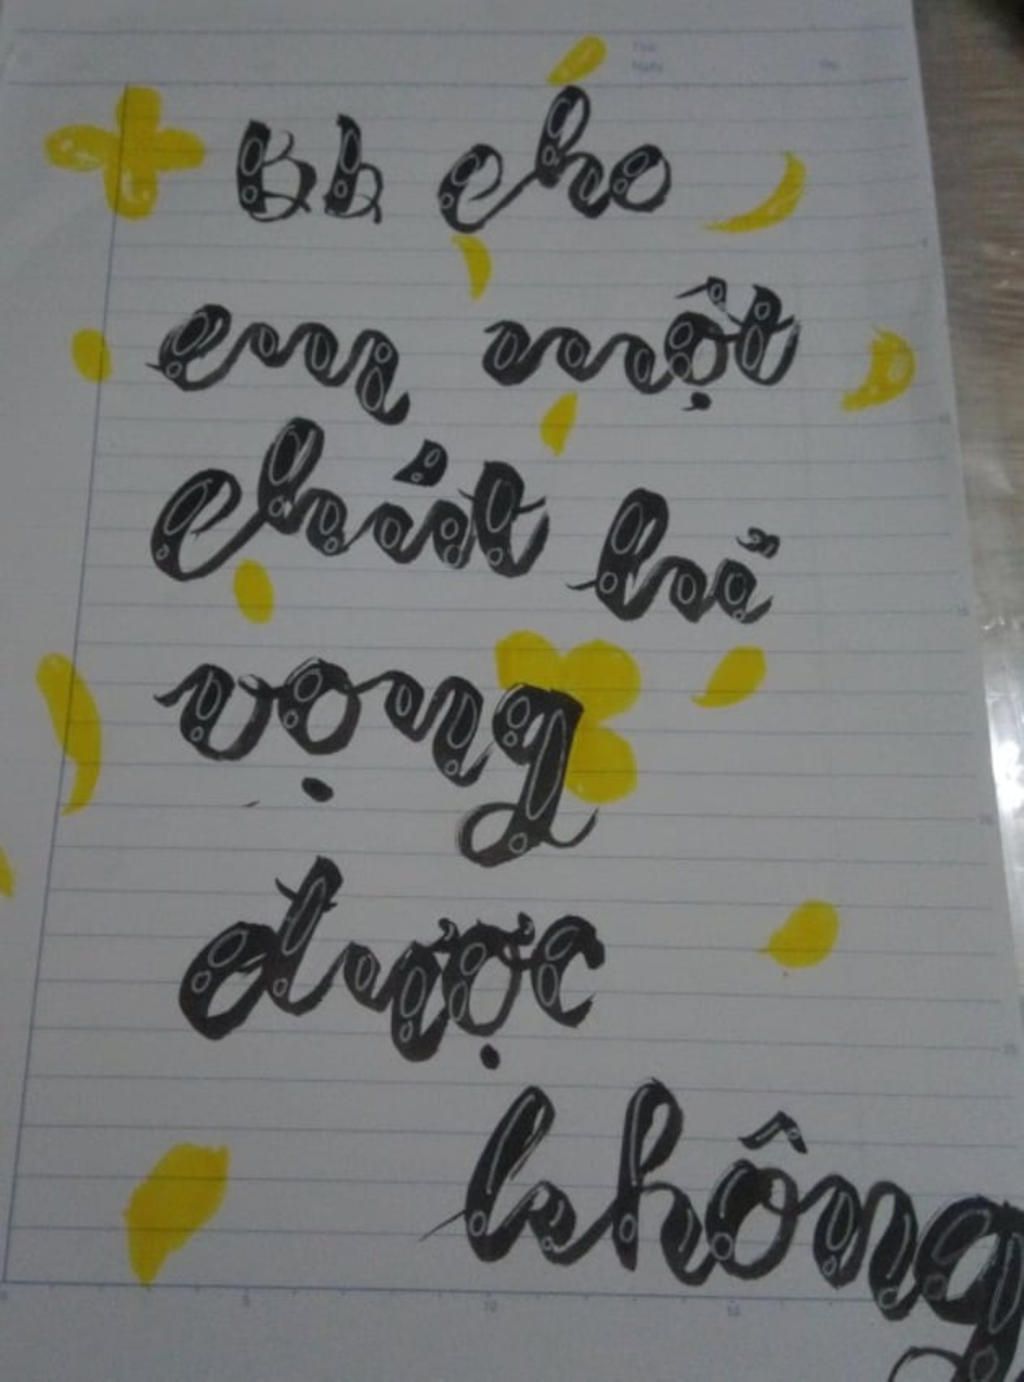 Bb cho
em một
chút hi
vọng
được
không